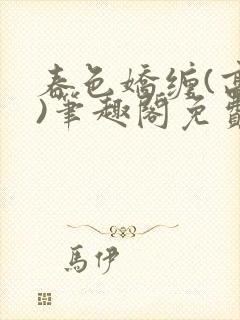 春色嬌纏(高
)筆趣閣免費
馬伊